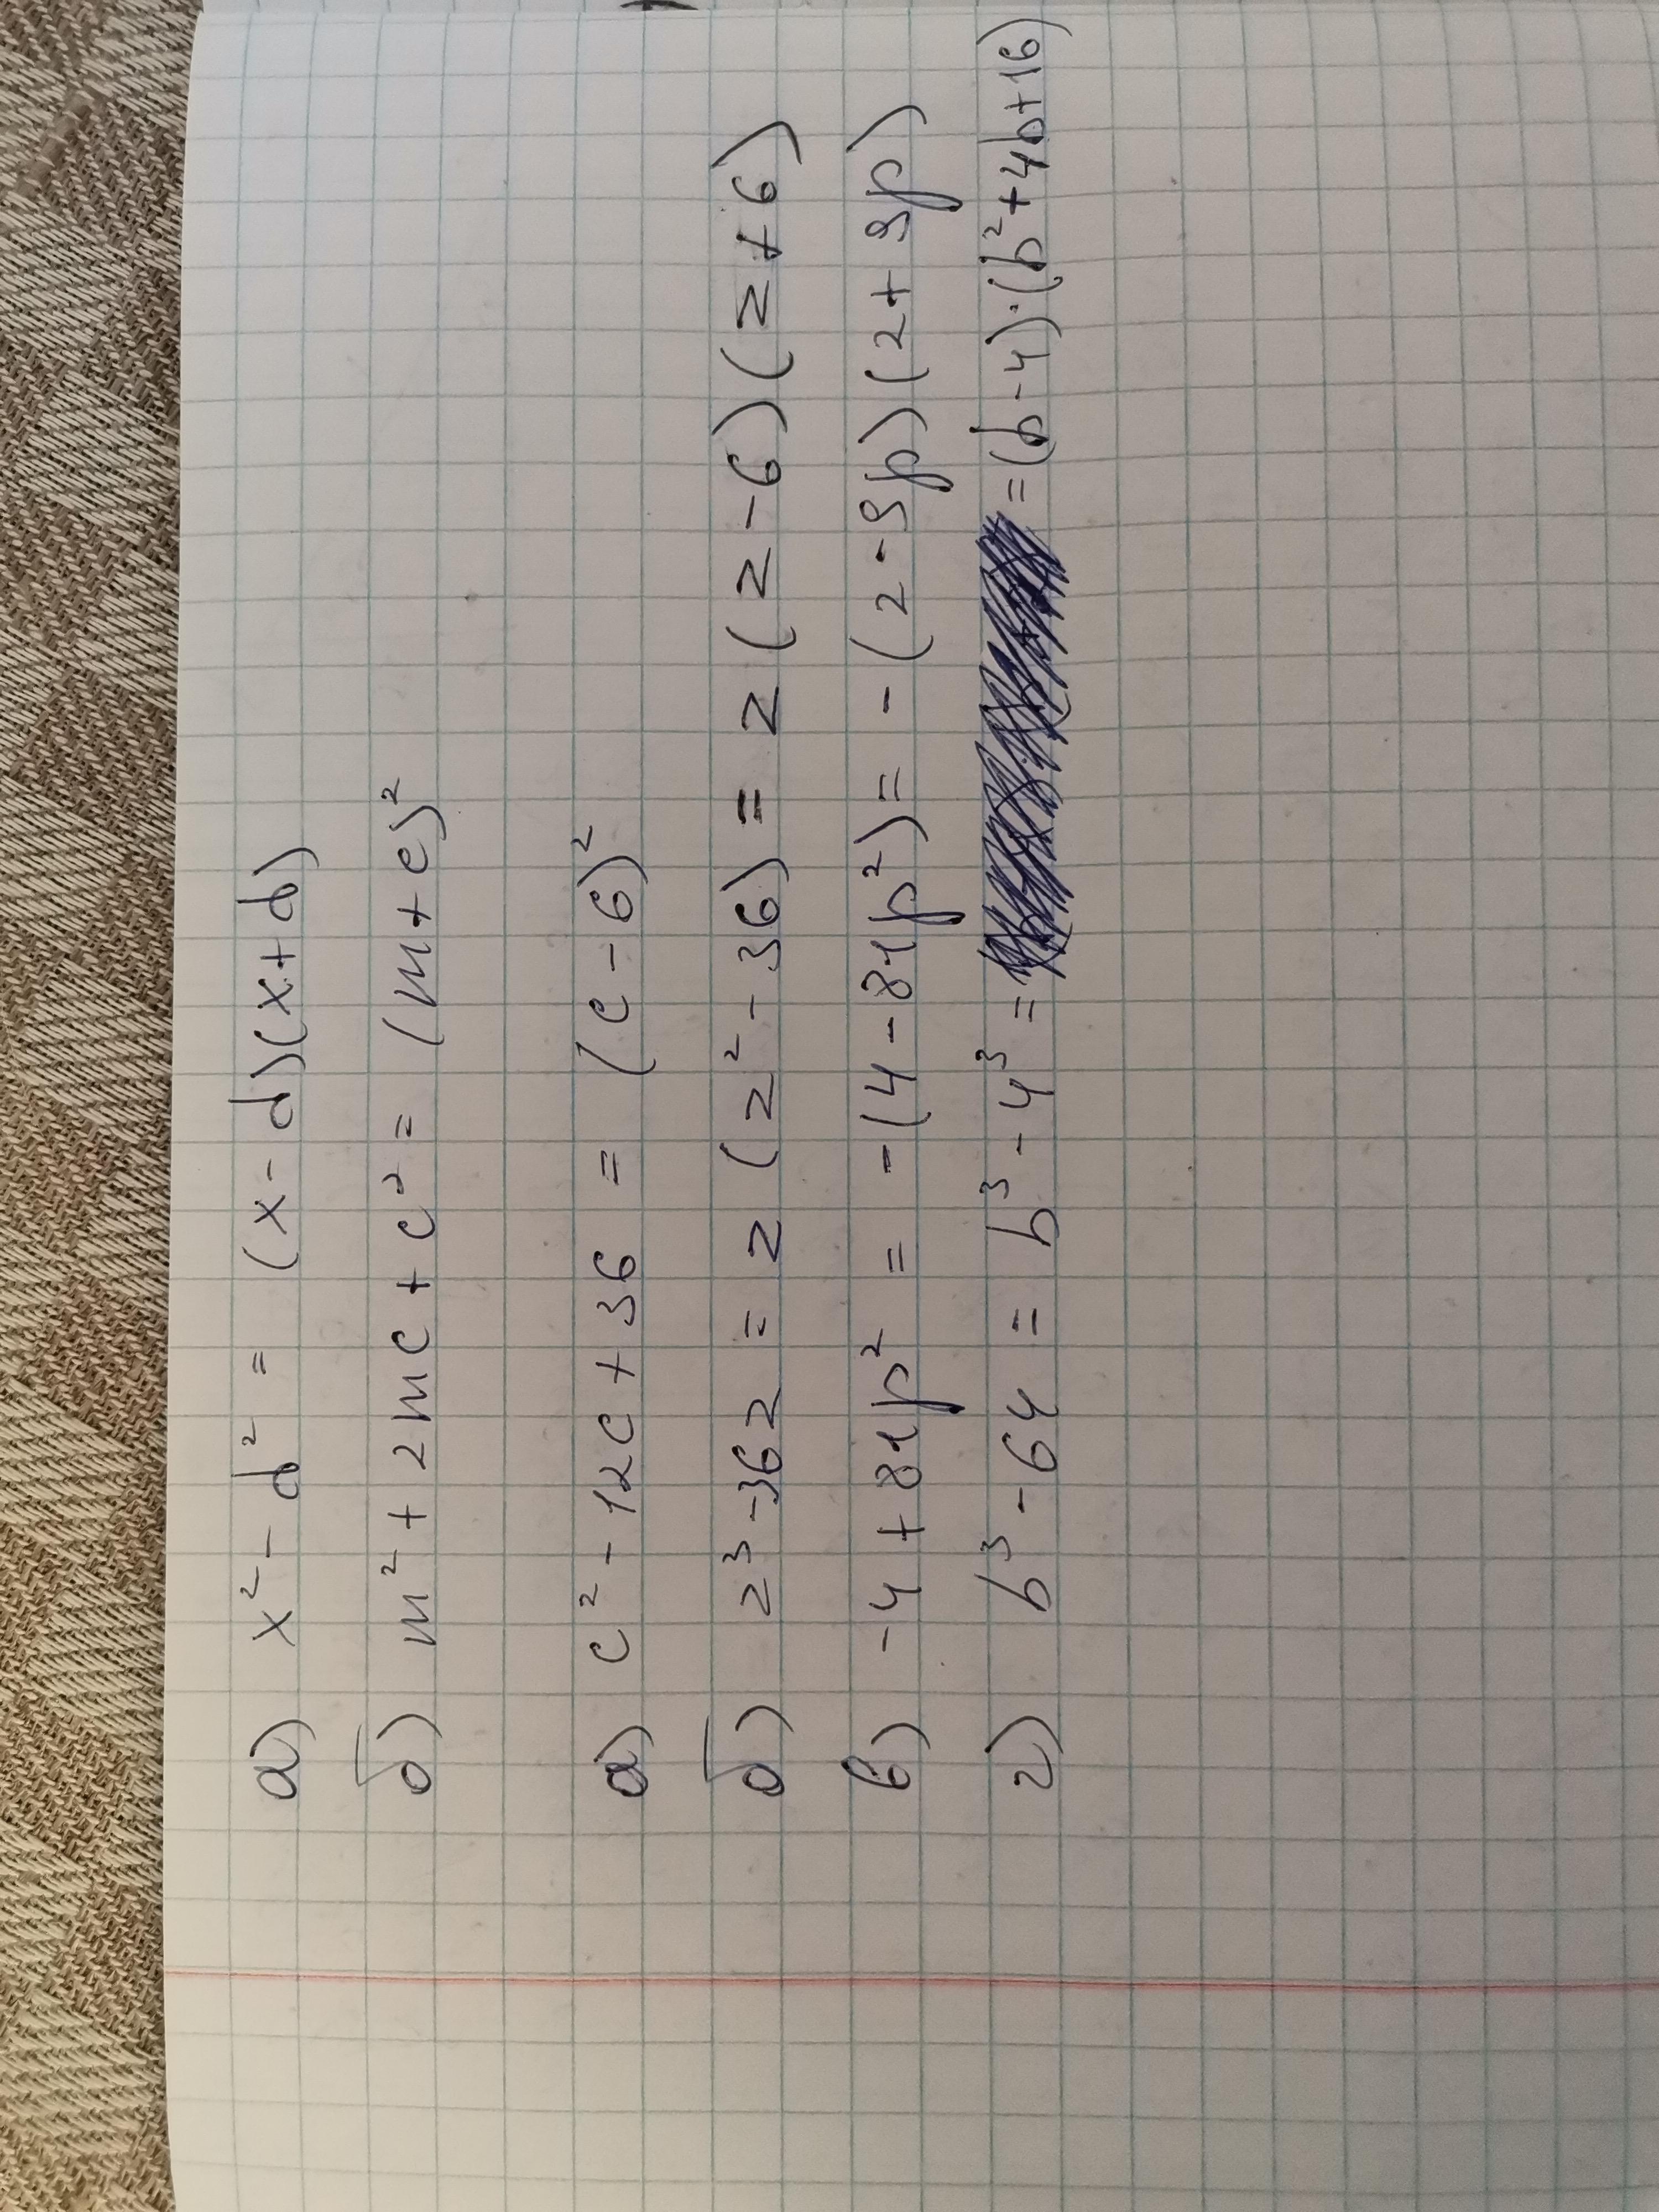 а) x² - d² = (x - d)(x + d)
б) m² + 2mc + c² = (m + c)²
а) c² - 12c + 36 = (c - 6)²
б) z³ - 36z = z (z² - 36) = z (z - 6)(z + 6)
в) -4 + 81p² = -(4 - 81p²) = -(2 - 9p)(2 + 9p)
г) b³ - 64 = b³ - 4³ = = (b - 4)·(b² + 4b + 16)